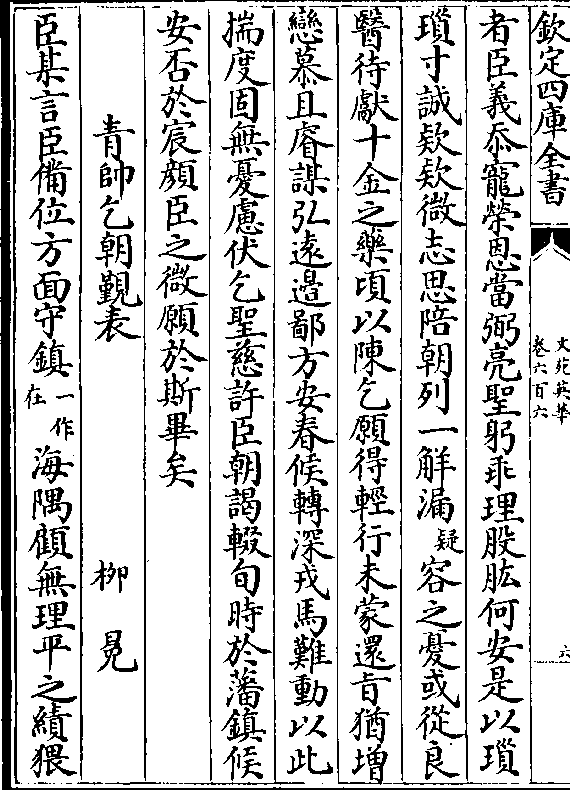 欽定四庫全書
文苑英華
卷六百六
六
者臣義忝寵榮恩當弼亮聖躬乖理股肱何安是以瑣
瑣寸誠欵欵微志思陪朝列一解漏疑容之憂或從良
醫待獻十金之藥頃以陳乞願得輕行未蒙還旨猶増
戀慕且睿謀弘遠邉鄙方安春候轉深戎馬難動以此
揣度固無憂慮伏乞聖慈許臣朝謁輟旬時於藩鎮候
安否於宸顔臣之微願於斯畢矣
青帥乞朝覲表 柳冕
臣某言臣備位方面守鎮一作在海隅顧無理平之績猥